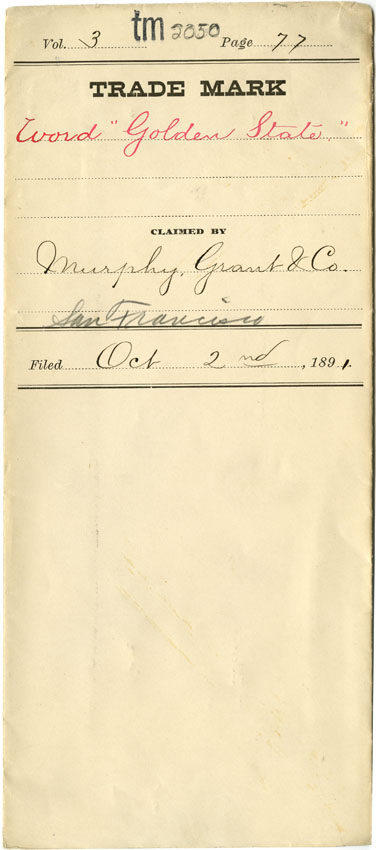 Vol. 3 tm 2050 Page 77
TRADE MARK
Word "Golden State."
CLAIMED BY
Murphy, Grant & Co.
San Francisco
Filed Oct 2nd, 1891.